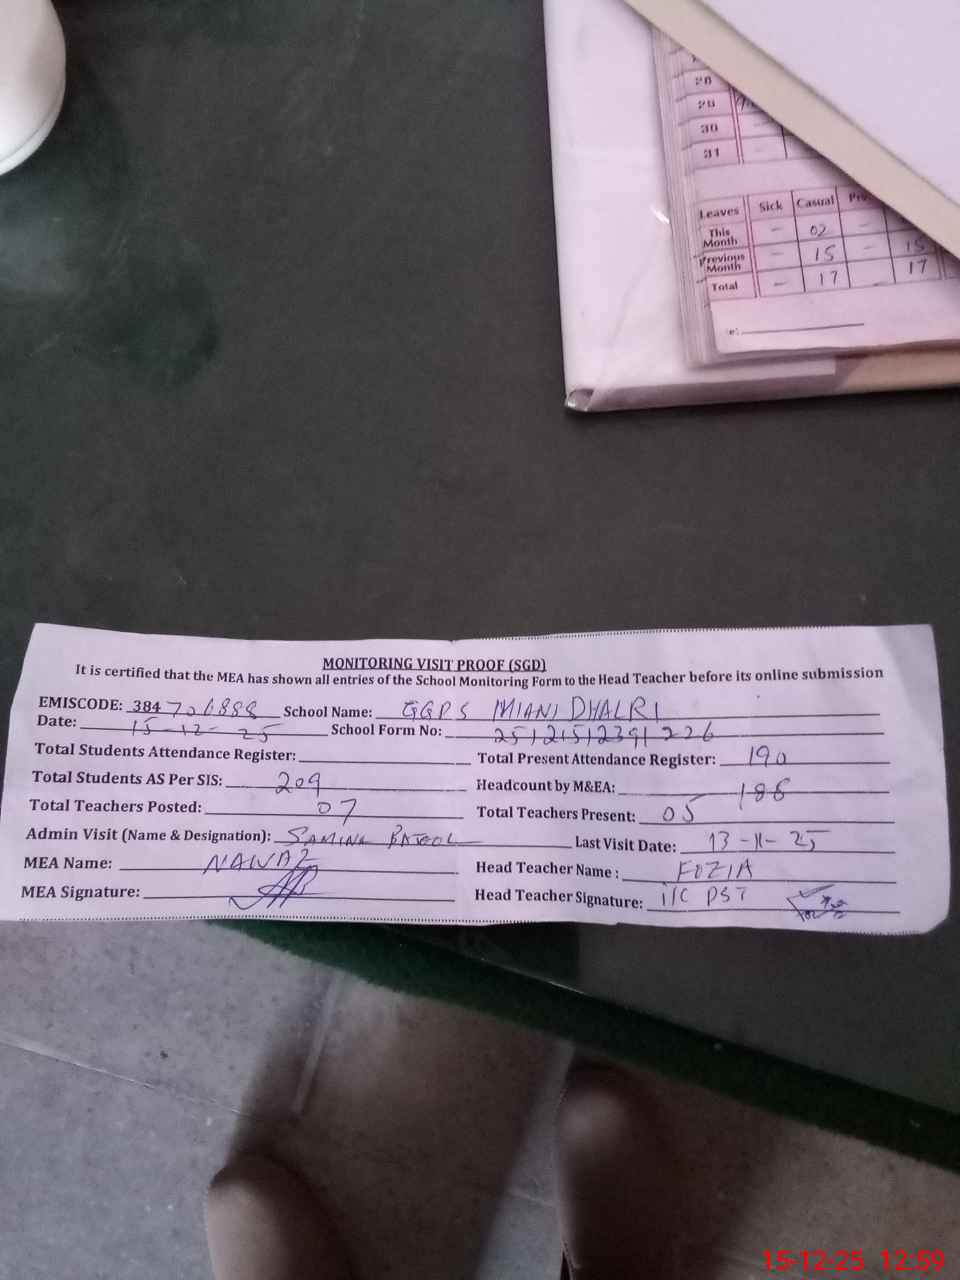 28
29
30
31
Leaves Sick Casual
This Month - 02 -
Previous Month - 15 - 15
Total - 17 - 17
MONITORING VISIT PROOF (SGD)
It is certified that the MEA has shown all entries of the School Monitoring Form to the Head Teacher before its online submission
EMISCODE: 384 School Name: GGPS MIANI DHALRI
Date: 15-12-25 School Form No:
Total Students Attendance Register: Total Present Attendance Register: 190
Total Students AS Per SIS: 209 Headcount by M&EA: 188
Total Teachers Posted: 07 Total Teachers Present: 05
Admin Visit (Name & Designation): SAMINA BATOOL Last Visit Date: 13-11-25
MEA Name: NAWAZ Head Teacher Name: FOZIA
MEA Signature: Head Teacher Signature: I/C PST
15-12-25 12:59